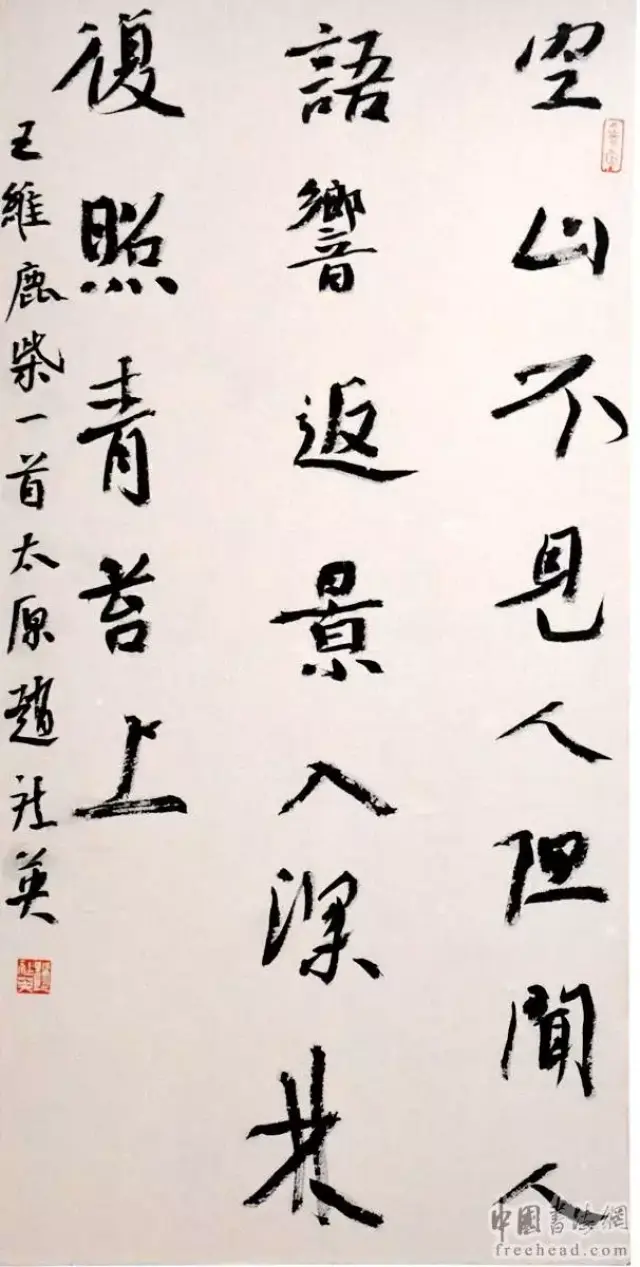 空山不見人但聞人
語響返景入深林
復照青苔上
王維鹿柴一首太原趙社英
中國書法網
freehead.com